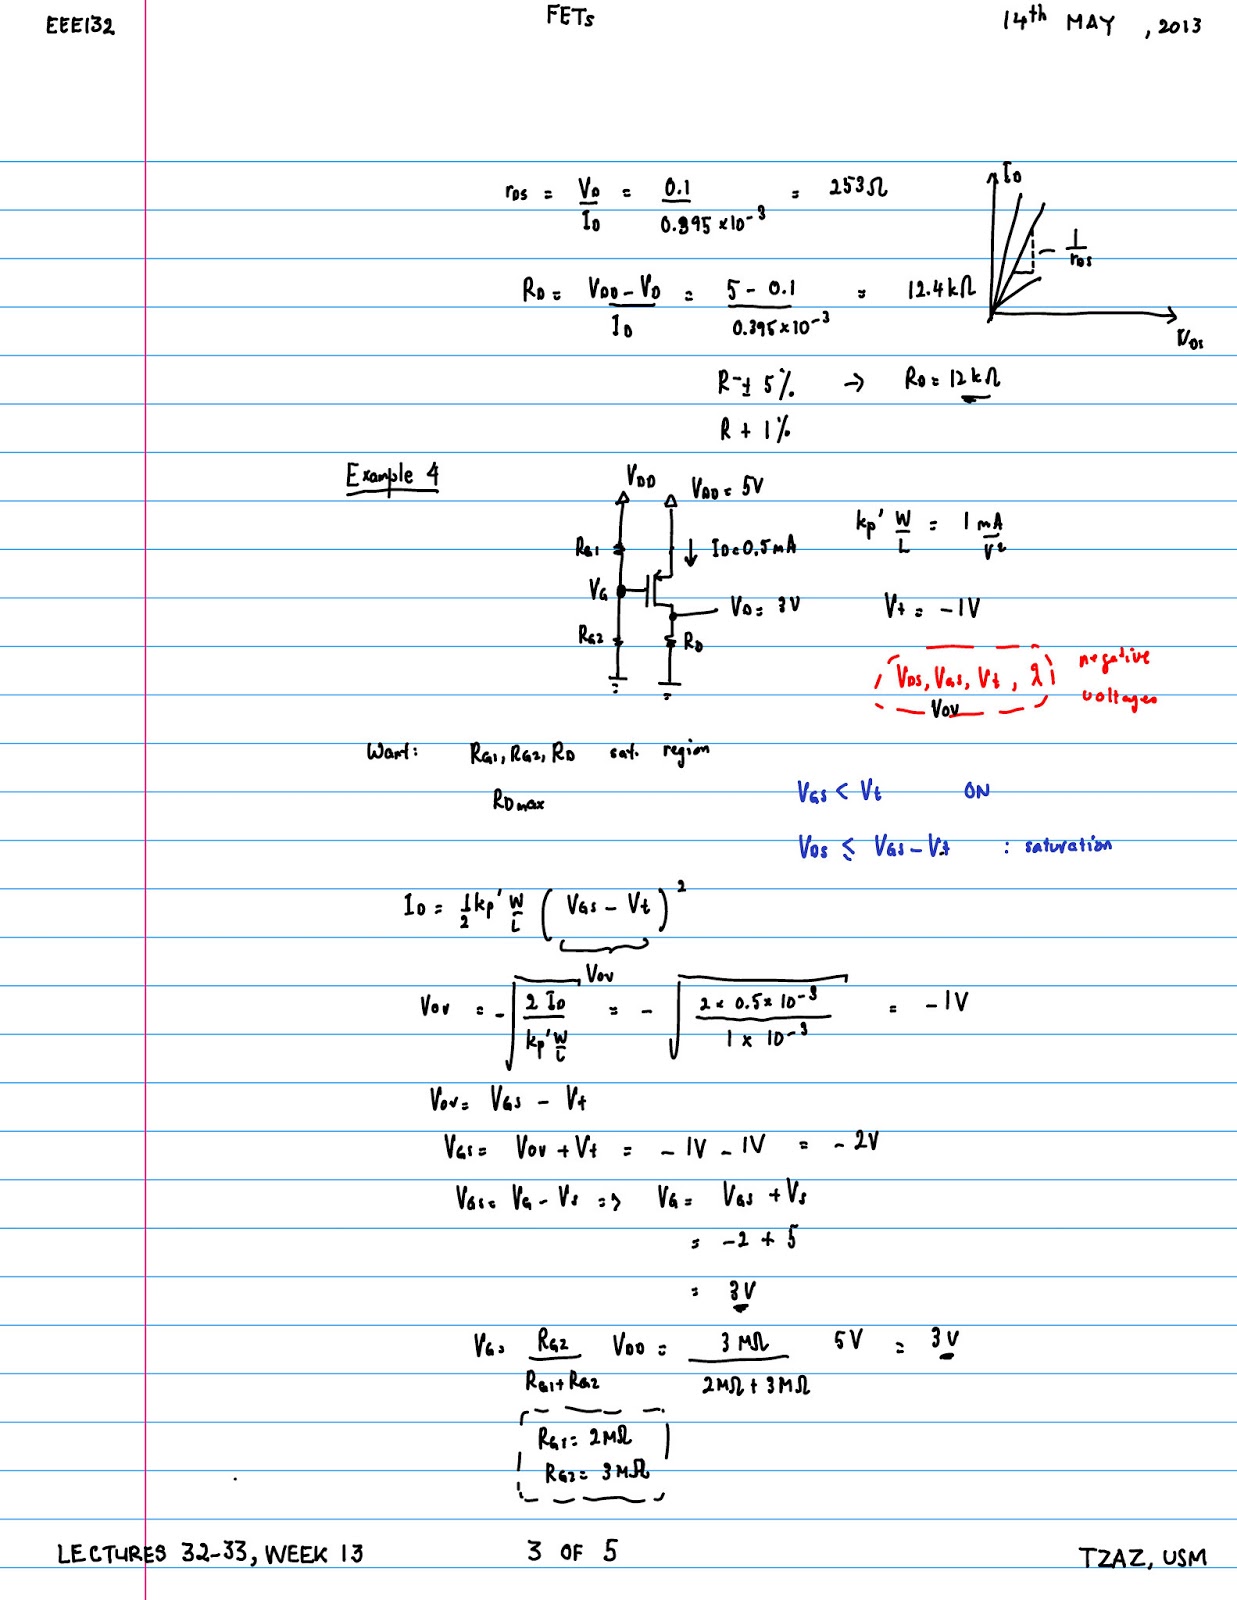 EEE132
FETs
14th MAY , 2013
rDS = VD/ID = 0.1/0.395×10-3 = 253Ω
ID
1/rDS
VDS
RD = VDD - VD/ID = 5 - 0.1/0.395×10-3 = 12.4kΩ
R ± 5% → RD = 12kΩ
R + 1%
Example 4
VDD
VDD = 5V
RG1
ID = 0.5mA
kp' W/L = 1 mA/V²
VG
VD = 3V
Vt = -1V
RG2
RD
VDS, VGS, Vt, λ
VOV
negative
voltages
Want: RG1, RG2, RD sat. region
RDmax
VGS < Vt ON
VDS ≤ VGS - Vt : saturation
ID = 1/2 kp' W/L (VGS - Vt)²
VOV
VOV = -√(2 ID/kp' W/L) = -√(2 × 0.5 × 10-3/1 × 10-3) = -1V
VOV = VGS - Vt
VGS = VOV + Vt = -1V - 1V = -2V
VGS = VG - VS => VG = VGS + VS
= -2 + 5
= 3V
VG = RG2/RG1+RG2 VDD = 3MΩ/2MΩ + 3MΩ 5V = 3V
RG1 = 2MΩ
RG2 = 3MΩ
LECTURES 32-33, WEEK 13
3 OF 5
TZAZ, USM